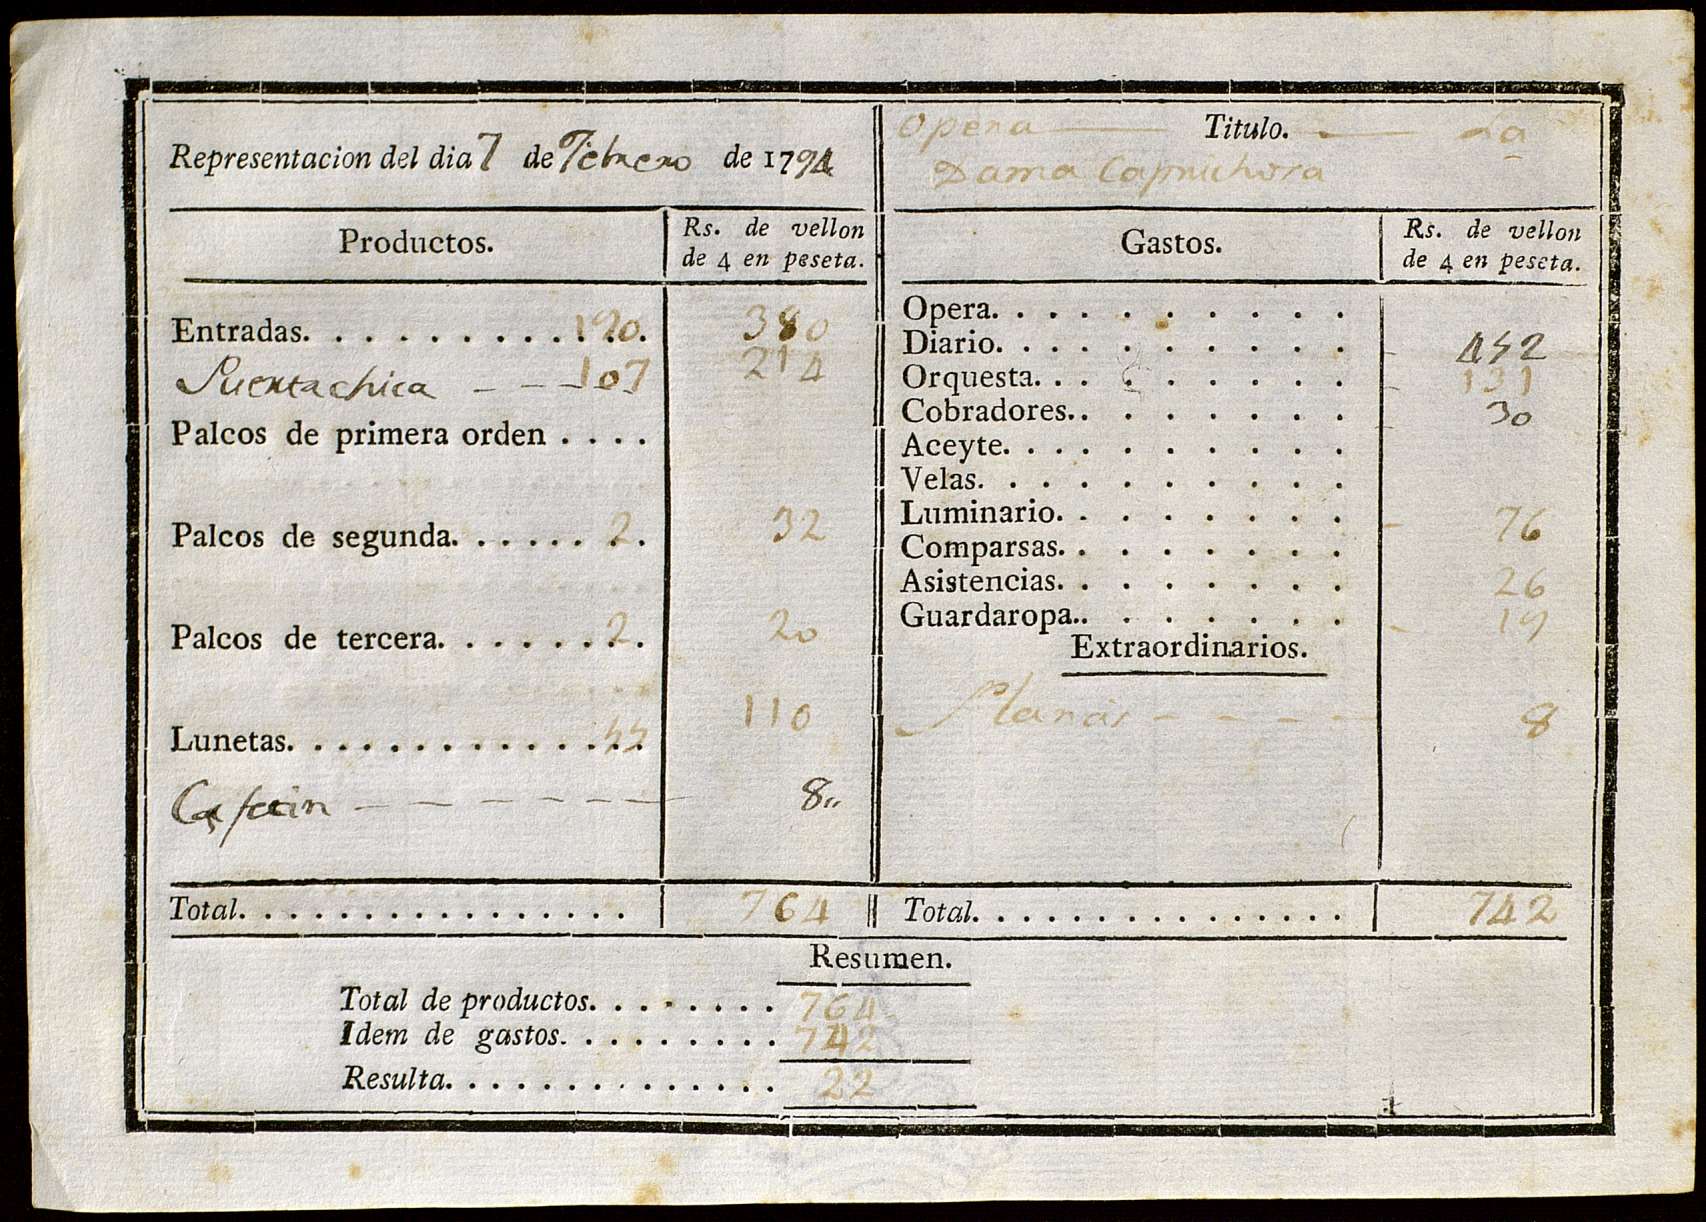 Representacion del dia 7 de Febrero de 1794
Opera — Titulo. — La
Dama Caprichosa
Productos.
Rs. de vellon
de 4 en peseta.
Entradas. . . . . . . . . . 190. 380
Puertachica - - - 107 214
Palcos de primera orden . . . .
Palcos de segunda. . . . . . 2. 32
Palcos de tercera. . . . . . 2. 20
Lunetas. . . . . . . . . . . . 55 110
8„
Total. . . . . . . . . . . . . . . . 764
Gastos.
Rs. de vellon
de 4 en peseta.
Opera. . . . . . . . . .
Diario. . . . . . . . . . - 452
Orquesta. . . . . . . . . - 131
Cobradores. . . . . . . . - 30
Aceyte. . . . . . . . . .
Velas. . . . . . . . . .
Luminario. . . . . . . . - 76
Comparsas. . . . . . . .
Asistencias. . . . . . . . 26
Guardaropa. . . . . . . . - 19
Extraordinarios.
- - - - 8
Total. . . . . . . . . . . . . . . 742
Resumen.
Total de productos. . . . . . . . 764
Idem de gastos. . . . . . . . . 742
Resulta. . . . . . . . . . . . . . 22